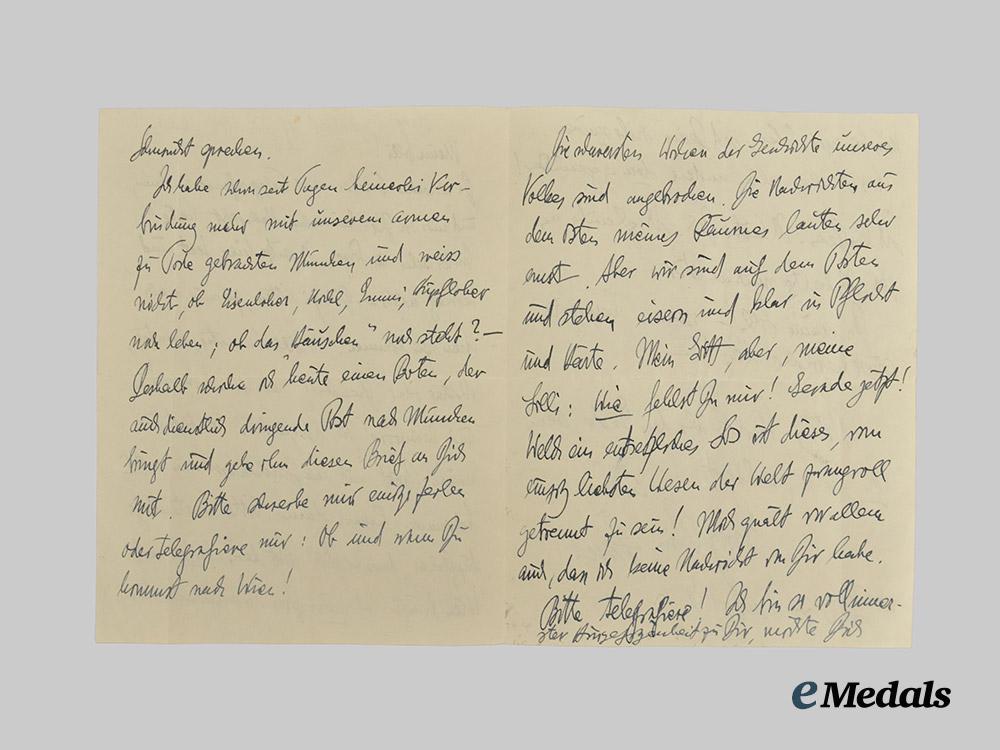 Sehnsucht sprechen.
Ich habe schon seit Tagen keinerlei Ver-
bindung mehr mit unserem armen
zu Tode gebrachten München und weiss
nicht, ob Eisenlober, Kohl, Emmi, Kupfloher
noch leben; ob das „Häuschen" noch steht? —
Deshalb schicke ich heute einen Boten, der
auch dienstlich dringende Post nach München
bringt und gebe ihm diesen Brief an Dich
mit. Bitte schreibe mir einige Zeilen
oder telegrafiere mir: Ob und wann Du
kommst nach Wien!
Die schwersten Wochen der Geschichte unseres
Volkes sind angebrochen. Die Nachrichten aus
dem Osten meines Raumes lauten sehr
ernst. Aber wir sind auf dem Posten
und stehen eisern und klar in Pflicht
und Härte. Mein Gott, aber, meine
Lilli: Wie fehlst Du mir! Gerade jetzt!
Welch ein entsetzliches Los ist dieses, vom
einzig liebsten Wesen der Welt
getrennt zu sein! Mich quält vor allem
auch, dass ich keine Nachricht von Dir habe.
Bitte telegrafiere! Ich bin so voll inner-
ster zu Dir, möchte Dich
eMedals